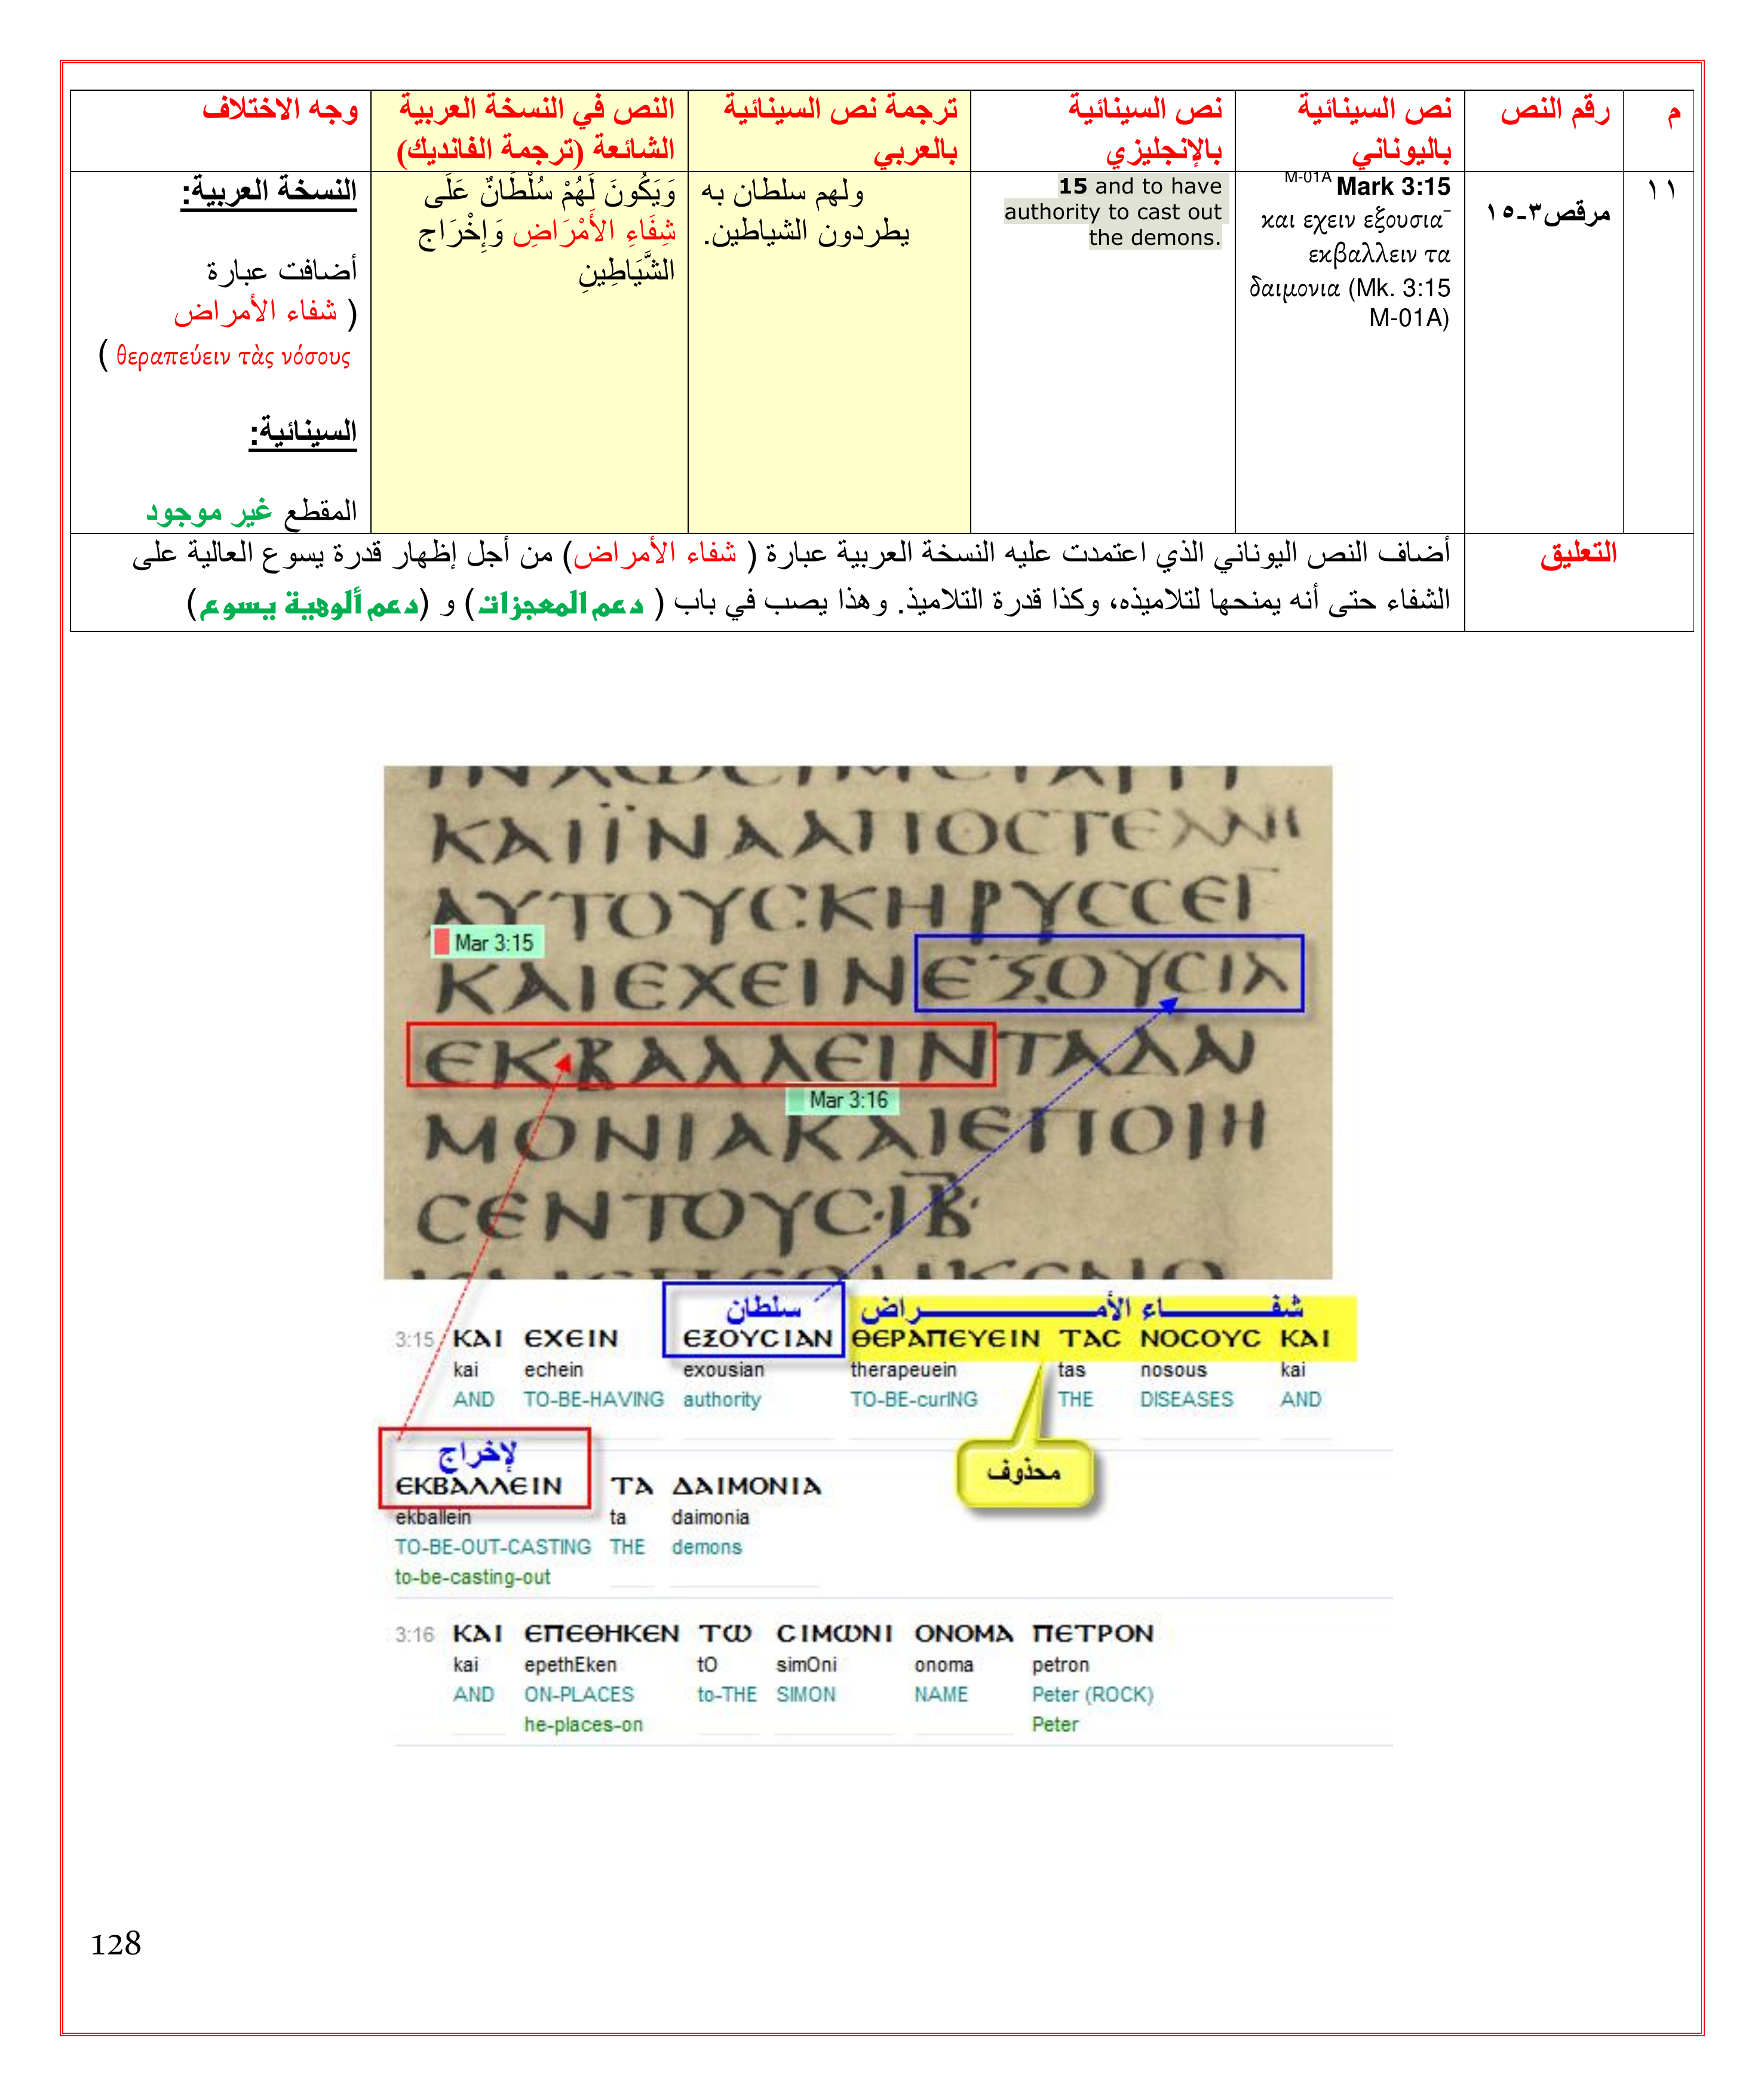 م
رقم النص
نص السينائية
باليوناني
نص السينائية
بالإنجليزي
ترجمة نص السينائية
بالعربي
النص في النسخة العربية
الشائعة (ترجمة الفانديك)
وجه الاختلاف
١١
مرقص٣-١٥
M-01A Mark 3:15
και εχειν εξουσια¯
εκβαλλειν τα
δαιμονια (Mk. 3:15
M-01A)
15 and to have
authority to cast out
the demons.
ولهم سلطان به
يطردون الشياطين.
وَيَكُونَ لَهُمْ سُلْطَانٌ عَلَى
شِفَاءِ الأَمْرَاضِ وَإِخْرَاج
الشَّيَاطِينِ
النسخة العربية:
أضافت عبارة
( شفاء الأمراض
θεραπεύειν τὰς νόσους )
السينائية:
المقطع غير موجود
التعليق
أضاف النص اليوناني الذي اعتمدت عليه النسخة العربية عبارة ( شفاء الأمراض) من أجل إظهار قدرة يسوع العالية على
الشفاء حتى أنه يمنحها لتلاميذه، وكذا قدرة التلاميذ. وهذا يصب في باب ( دعم المعجزات) و (دعم ألوهية يسوع)
ΚΑΙΪΝΑΑΠΟϹΤΕΛΛΙ
ΑΥΤΟΥϹΚΗΡΥϹϹΕΙ¯
Mar 3:15
ΚΑΙΕΧΕΙΝΕΞΟΥϹΙΑ
ΕΚΒΑΛΛΕΙΝΤΑΔΑΙ
Mar 3:16
ΜΟΝΙΑΚΑΙΕΠΟΙΗ
ϹΕΝΤΟΥϹ·ΙΒ·
سلطان شفاء الأمراض
3:15 ΚΑΙ ΕΧΕΙΝ ΕΞΟΥϹΙΑΝ ΘΕΡΑΠΕΥΕΙΝ ΤΑϹ ΝΟϹΟΥϹ ΚΑΙ
kai echein exousian therapeuein tas nosous kai
AND TO-BE-HAVING authority TO-BE-curING THE DISEASES AND
محذوف
لإخراج
ΕΚΒΑΛΛΕΙΝ ΤΑ ΔΑΙΜΟΝΙΑ
ekballein ta daimonia
TO-BE-OUT-CASTING THE demons
to-be-casting-out
3:16 ΚΑΙ ΕΠΕΘΗΚΕΝ ΤΩ ϹΙΜΩΝΙ ΟΝΟΜΑ ΠΕΤΡΟΝ
kai epethEken tO simOni onoma petron
AND ON-PLACES to-THE SIMON NAME Peter (ROCK)
he-places-on Peter
128